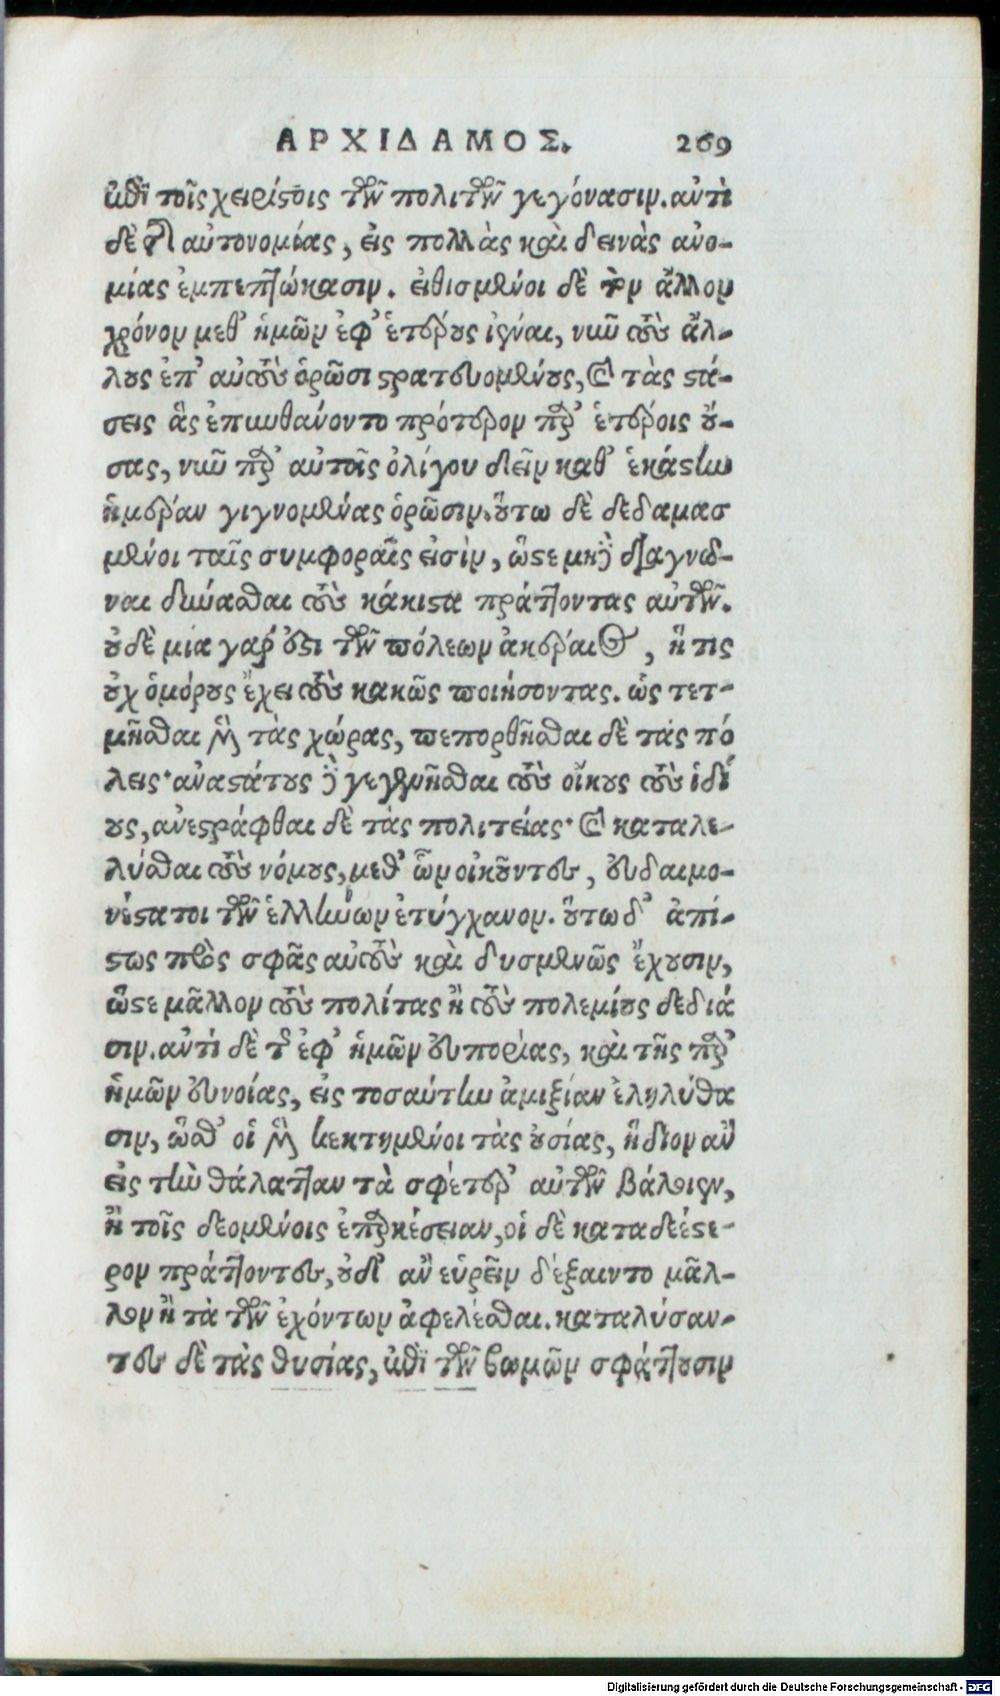 ΑΡΧΙΔΑΜΟΣ. 269
ἐπὶ τοῖς χειρίστοις τῶν πολιτῶν γεγόνασιν. ἀντὶ
δὲ τῆς αὐτονομίας, εἰς πολλὰς καὶ δεινὰς ἀνο-
μίας ἐμπεπτώκασιν. εἰθισμένοι δὲ τὸν ἄλλον
χρόνον μεθ' ἡμῶν ἐφ' ἑτέρους ἰέναι, νῦν τοὺς ἄλ-
λους ἐπ' αὐτοὺς ὁρῶσι στρατευομένους, καὶ τὰς στά-
σεις ἃς ἐπυνθάνοντο πρότερον παρ' ἑτέροις οὔ-
σας, νῦν παρ' αὐτοῖς ὀλίγου δεῖν καθ' ἑκάστην
ἡμέραν γιγνομένας ὁρῶσιν. οὕτω δὲ δεδαμασ
μένοι ταῖς συμφοραῖς εἰσὶν, ὥστε μηδένα διαγνῶ-
ναι δύνασθαι τοὺς κάκιστα πράττοντας αὐτῶν.
οὐδὲ μία γάρ ἐστι τῶν πόλεων ἀκέραιος, ἥ τις
οὐχ ὁμόρους ἔχει τοὺς κακῶς ποιήσοντας. ὡς τετ-
μῆσθαι μὲν τὰς χώρας, πεπορθῆσθαι δὲ τὰς πό
λεις· ἀναστάτους δὲ γεγενῆσθαι τοὺς οἴκους τοὺς ἰδί
ους, ἀνεστράφθαι δὲ τὰς πολιτείας· καὶ καταλε-
λύσθαι τοὺς νόμους, μεθ' ὧν οἰκοῦντες, εὐδαιμο-
νέστατοι τῶν ἑλλήνων ἐτύγχανον. οὕτω δ' ἀπί-
στως πρὸς σφᾶς αὐτοὺς καὶ δυσμενῶς ἔχουσιν,
ὥστε μᾶλλον τοὺς πολίτας ἢ τοὺς πολεμίους δεδιά
σιν. ἀντὶ δὲ τῆς ἐφ' ἡμῶν εὐπορίας, καὶ τῆς παρ'
ἡμῶν εὐνοίας, εἰς τοσαύτην ἀμιξίαν ἐληλύθα
σιν, ὥσθ' οἱ μὲν κεκτημένοι τὰς οὐσίας, ἥδιον ἂν
εἰς τὴν θάλατταν τὰ σφέτερ' αὐτῶν βάλοιεν,
ἢ τοῖς δεομένοις ἐπαρκέσειαν, οἱ δὲ καταδεέστε-
ρον πράττοντες, οὐδ' ἂν εὑρεῖν δέξαιντο μᾶλ-
λον ἢ τὰ τῶν ἐχόντων ἀφελέσθαι. καταλύσαν-
τες δὲ τὰς θυσίας, ἐπὶ τῶν βωμῶν σφάττουσιν
Digitalisierung gefördert durch die Deutsche Forschungsgemeinschaft - DFG